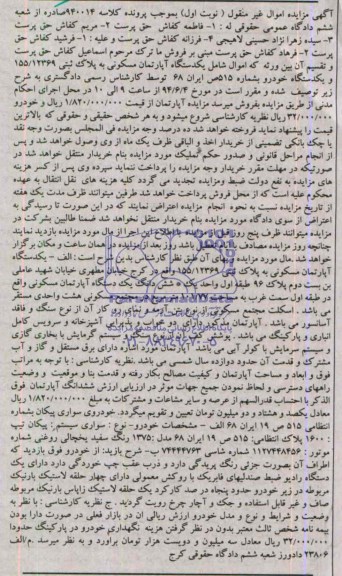 آگهی مزایده اموال غیر منقول ( نوبت اول) بموجب پرونده کلاسه ۹۴۰۰۱۴صادره از شعبه
ششم دادگاه عمومی حقوقی له : ۱- فاطمه کفاش حق پرست ۲- مریم کفاش حق پرست
۳- سیده زهرا نژاد حسینی لاهیجی ۴- فرزانه کفاش حق پرست و علیه : ۱- فرشید کفاش حق
پرست ۲- فرهاد کفاش حق پرست مبنی بر فروش ما ترک مرحوم اسماعیل کفاش حق پرست
و تقسیم آن بین ورثه که اموال شامل یکدستگاه آپارتمان مسکونی به پلاک ثبتی ۱۵۵/۱۲۳۶۹
و یکدستگاه خودرو بشماره ۵۱۵ص ایران ۶۸ توسط کارشناس رسمی دادگستری به شرح
زیر توصیف شده و مقرر است در مورخ ۹۴/۶/۴ از ساعت ۹ الی ۱۰ در محل اجرای احکام
مدنی از طریق مزایده بفروش میرسد مزایده آپارتمان از قیمت ۱/۸۲۰/۰۰۰/۰۰۰ ریال و خودرو
۳۲/۰۰۰/۰۰۰ ریال نظریه کارشناسی شروع میشود و به هر شخص حقیقی و حقوقی که بالاترین
قیمت را پیشنهاد نماید فروخته خواهد شد ده درصد وجه مزایده فی المجلس بصورت وجه نقد
یا چک بانکی تضمینی از خریدار اخذ و الباقی ظرف یک ماه از وی وصول خواهد شد و پس
از انجام مراحل قانونی و صدور حکم تملیک مورد مزایده بنام خریدار منتقل خواهد شد در
صورتیکه در مهلت مقرر خریدار وجه مزایده را پرداخت ننماید سپرده وی پس از کسر هزینه
های مزایده به نفع دولت ضبط ومزایده تجدید می گردد کلیه هزینه های نقل انتقال به عهده
محکوم علیه است که از محل فروش پرداخت خواهد شد طرفین میتوانند ظرف مدت یک هفته
از تاریخ مزایده نسبت به نحوه انجام مزایده اعتراض نمایند که در این صورت تا رسیدگی به
اعتراض از سوی دادگاه مورد مزایده بنام خریدار منتقل نخواهد شد ضمنا طالبین بشرکت در
مزایده میتوانند ظرف پنج روز قبل از مزایده با اطلاع این اجرا از مال مورد مزایده بازدید نمایند
چنانچه روز مزایده مصادف با تعطیل باشد روز بعد از مزایده در همان ساعت و مکان برگزار
خواهد شد .مال مورد مزایده و بهای آن طبق نظر کارشناس بدین شرح است : الف - یکدستگاه
آپارتمان مسکونی به پلاک ثبتی ۱۵۵/۱۲۳۶۹ واقع در کرج خیابان مطهری خیابان شهید عاملی
بن بست دوم پلاک ۹۶ طبقه اول واحد یک ششدانگ یک دستگاه آپارتمان مسکونی واقع
در طبقه اول سمت غرب به مساحت متر مربع در مجتمع مسکونی هشت واحدی مستقر
می باشد . اسکلت مجتمع مسکونی از نوع بتن آرمه و نمای رو کار آن از نوع سنگ و فاقد
آسانسور می باشد . آپارتمان دارای دو آشپزخانه و سرویس کامل
انباری و پارکینگ می باشد . پوشش سیستم گرمایش با بخاری گازی
و سیستم سرمایش با کولر آبی می باشد . آپارتمان دارای برق مستقل و گاز و آب
مشترک و قدمت آن حدود دوازده سال شمسی می باشد .نظریه کارشناسی : با توجه به مراتب
فوق و ابعاد و مساحت آپارتمان و کیفیت مصالح بکار رفته و قدمت بنا و موقعیت و وضعیت
راههای دسترسی و لحاظ نمودن جمیع جهات موثر در ارزیابی ارزش ششدانگ آپارتمان فوق
الذکر با احتساب قدرالسهم از عرصه و سایر مشاعات و مشترکات به مبلغ ۱/۸۲۰/۰۰۰/۰۰۰ ریال
معادل یکصد و هشتاد و دو میلیون تومان تعیین و تقویم میگردد. خودروی سواری پیکان بشماره
انتظامی ۵۱۵ ص ۱۹ ایران ۶۸ الف - مشخصات خودرو- نوع : سواری سیستم: پیکان تیپ
: ۱۶۰۰ پلاک انتظامی: ۵۱۵ ص ۱۹ ایران ۶۸ مدل :۱۳۷۵ رنگ سفید یخچالی روغنی شماره
موتور : ۱۱۲۷۴۸۴۵۶ شماره شاسی ۷۴۴۴۴۷۶۳ ب- شرح بازید: از خودرو فوق بازدید که
اطراف آن بصورت جزئی رنگ پریدگی دارد و درب عقب چپ خوردگی دارد دارای یک
دستگاه رادیو ضبط صندلیهای فابریک با روکش معمولی دارای چهار حلقه لاستیک باریک
مربوطه در زیر خودرو حدود پنجاه در صد کارکرد یک حلقه لاستیک زاپاس باریک مربوطه
صاف و غیر قابل استفاده و جک و آچار چرخ رویت گردید . ج نظریه کارشناسی : با نظر به
وضعیت و شرایط و نوع و مدل خودرو ارزش ریالی ان در بازار فعلی در صورت دارا بودن
بیمه نامه شخص ثالث معتبر بدون در نظر گرفتن هزینه نگهداری خودرو در پارکینگ حدودا
۳۲/۰۰۰/۰۰۰ ریال معادل سه میلیون و دویست هزار تومان براورد و به نظر میرسد .م/الف
۲۳۸۰۶ دادورز شعبه ششم دادگاه حقوقی کرج